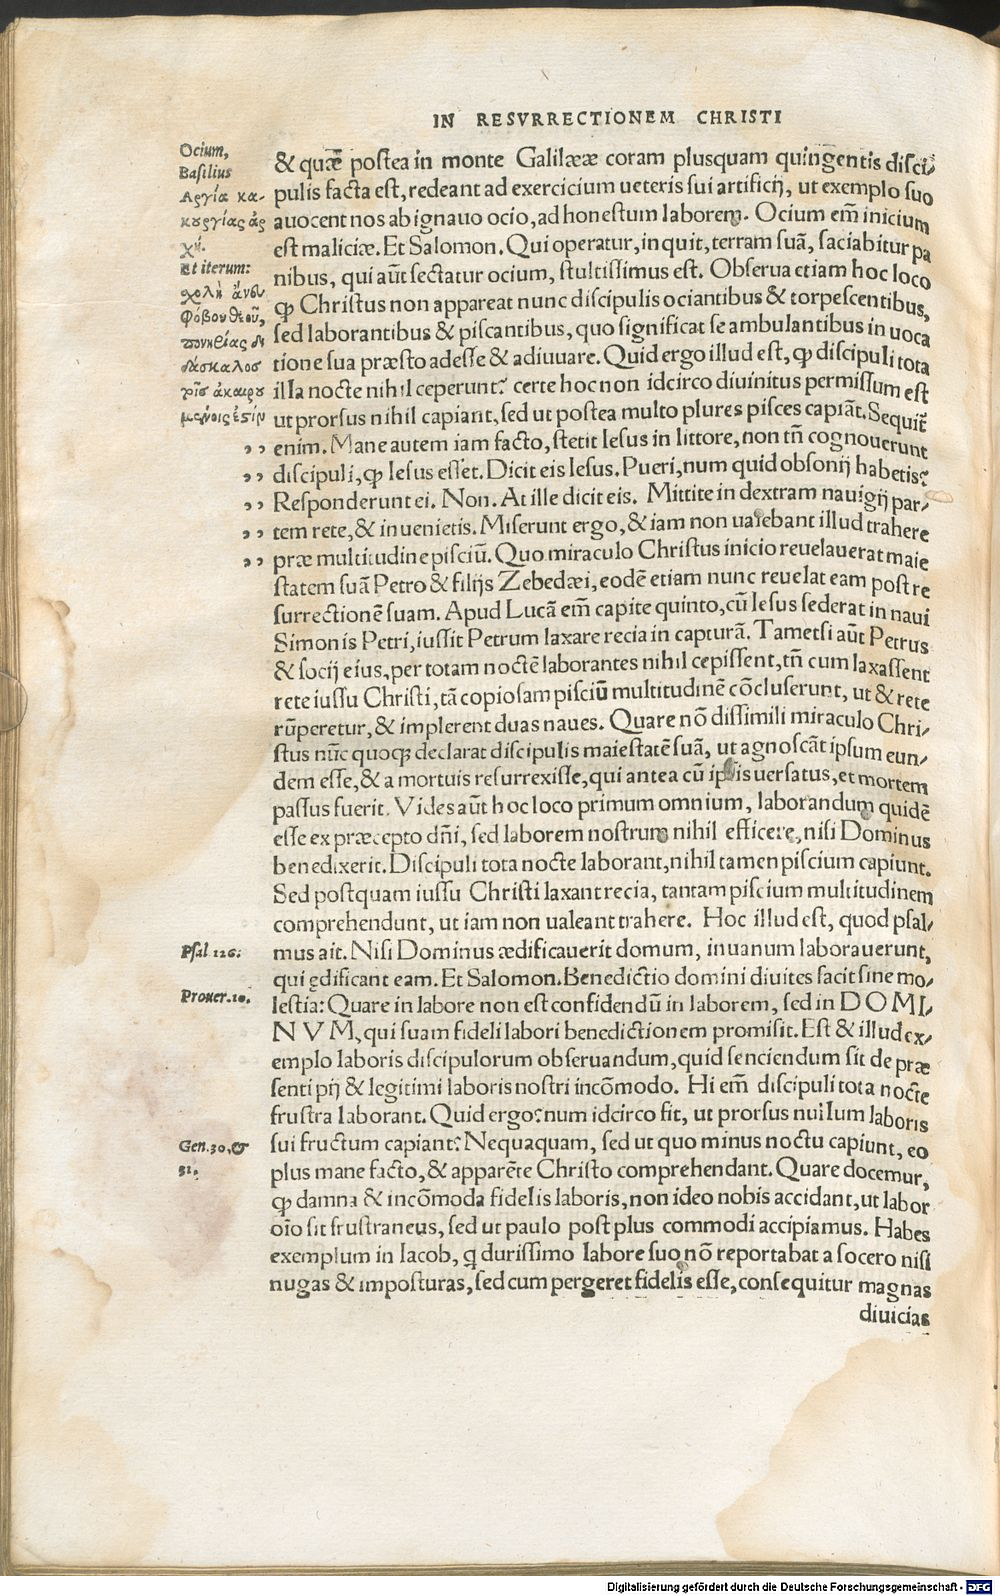 IN RESVRRECTIONEM CHRISTI
Ocium,
Basilius
Αργία κα-
κουργίας ἀρ
χή.
Et iterum:
σχολὴ ἄνευ
φόβου θεοῦ,
πονηρίας δι
δάσκαλος
& quæ postea in monte Galilææ coram plusquam quingentis disci⸗
pulis facta est, redeant ad exercicium ueteris sui artificij, ut exemplo suo
auocent nos ab ignauo ocio, ad honestum laborem. Ocium em̄ inicium
est maliciæ. Et Salomon. Qui operatur, inquit, terram suā, saciabitur pa
nibus, qui aūt sectatur ocium, stultissimus est. Obserua etiam hoc loco
ꝙ Christus non appareat nunc discipulis ociantibus & torpescentibus,
sed laborantibus & piscantibus, quo significat se ambulantibus in uoca
tione sua præsto adesse & adiuuare. Quid ergo illud est, ꝙ discipuli tota
illa nocte nihil ceperunt? certe hoc non idcirco diuinitus permissum est
ut prorsus nihil capiant, sed ut postea multo plures pisces capiāt. Sequit̄
,, enim. Mane autem iam facto, stetit Iesus in littore, non tn̄ cognouerunt
,, discipuli, ꝙ Iesus esset. Dicit eis Iesus. Pueri, num quid obsonij habetis?
,, Responderunt ei. Non. At ille dicit eis. Mittite in dextram nauigij par⸗
,, tem rete, & inuenietis. Miserunt ergo, & iam non ualebant illud trahere
,, præ multitudine pisciū. Quo miraculo Christus inicio reuelauerat maie
statem suā Petro & filijs Zebedæi, eodē etiam nunc reuelat eam post re
surrectionē suam. Apud Lucā em̄ capite quinto, cū Iesus sederat in naui
Simonis Petri, iussit Petrum laxare recia in capturā. Tametsi aūt Petrus
& socij eius, per totam noctē laborantes nihil cepissent, tn̄ cum laxassent
rete iussu Christi, tā copiosam pisciū multitudinē cōcluserunt, ut & rete
rūperetur, & implerent duas naues. Quare nō dissimili miraculo Chri⸗
stus nūc quoqꝫ declarat discipulis maiestatē suā, ut agnoscāt ipsum eun⸗
dem esse, & a mortuis resurrexisse, qui antea cū ipsis uersatus, et mortem
passus fuerit. Vides aūt hoc loco primum omnium, laborandum quidē
esse ex præcepto dn̄i, sed laborem nostrum nihil efficere, nisi Dominus
benedixerit. Discipuli tota nocte laborant, nihil tamen piscium capiunt.
Sed postquam iussu Christi laxant recia, tantam piscium multitudinem
comprehendunt, ut iam non ualeant trahere. Hoc illud est, quod psal⸗
Psal 126.
mus ait. Nisi Dominus ædificauerit domum, inuanum laborauerunt,
qui ędificant eam. Et Salomon. Benedictio domini diuites facit sine mo⸗
Prouer. 10.
lestia: Quare in labore non est confidendū in laborem, sed in DOMI⸗
NVM, qui suam fideli labori benedictionem promisit. Est & illud ex⸗
emplo laboris discipulorum obseruandum, quid senciendum sit de præ
senti pij & legitimi laboris nostri incōmodo. Hi em̄ discipuli tota nocte
frustra laborant. Quid ergo? num idcirco fit, ut prorsus nullum laboris
Gen. 30. &
31.
sui fructum capiant? Nequaquam, sed ut quo minus noctu capiunt, eo
plus mane facto, & apparēte Christo comprehendant. Quare docemur,
ꝙ damna & incōmoda fidelis laboris, non ideo nobis accidant, ut labor
oīo sit frustraneus, sed ut paulo post plus commodi accipiamus. Habes
exemplum in Iacob, q̄ durissimo labore suo nō reportabat a socero nisi
nugas & imposturas, sed cum pergeret fidelis esse, consequitur magnas
diuicias
Digitalisierung gefördert durch die Deutsche Forschungsgemeinschaft - DFG